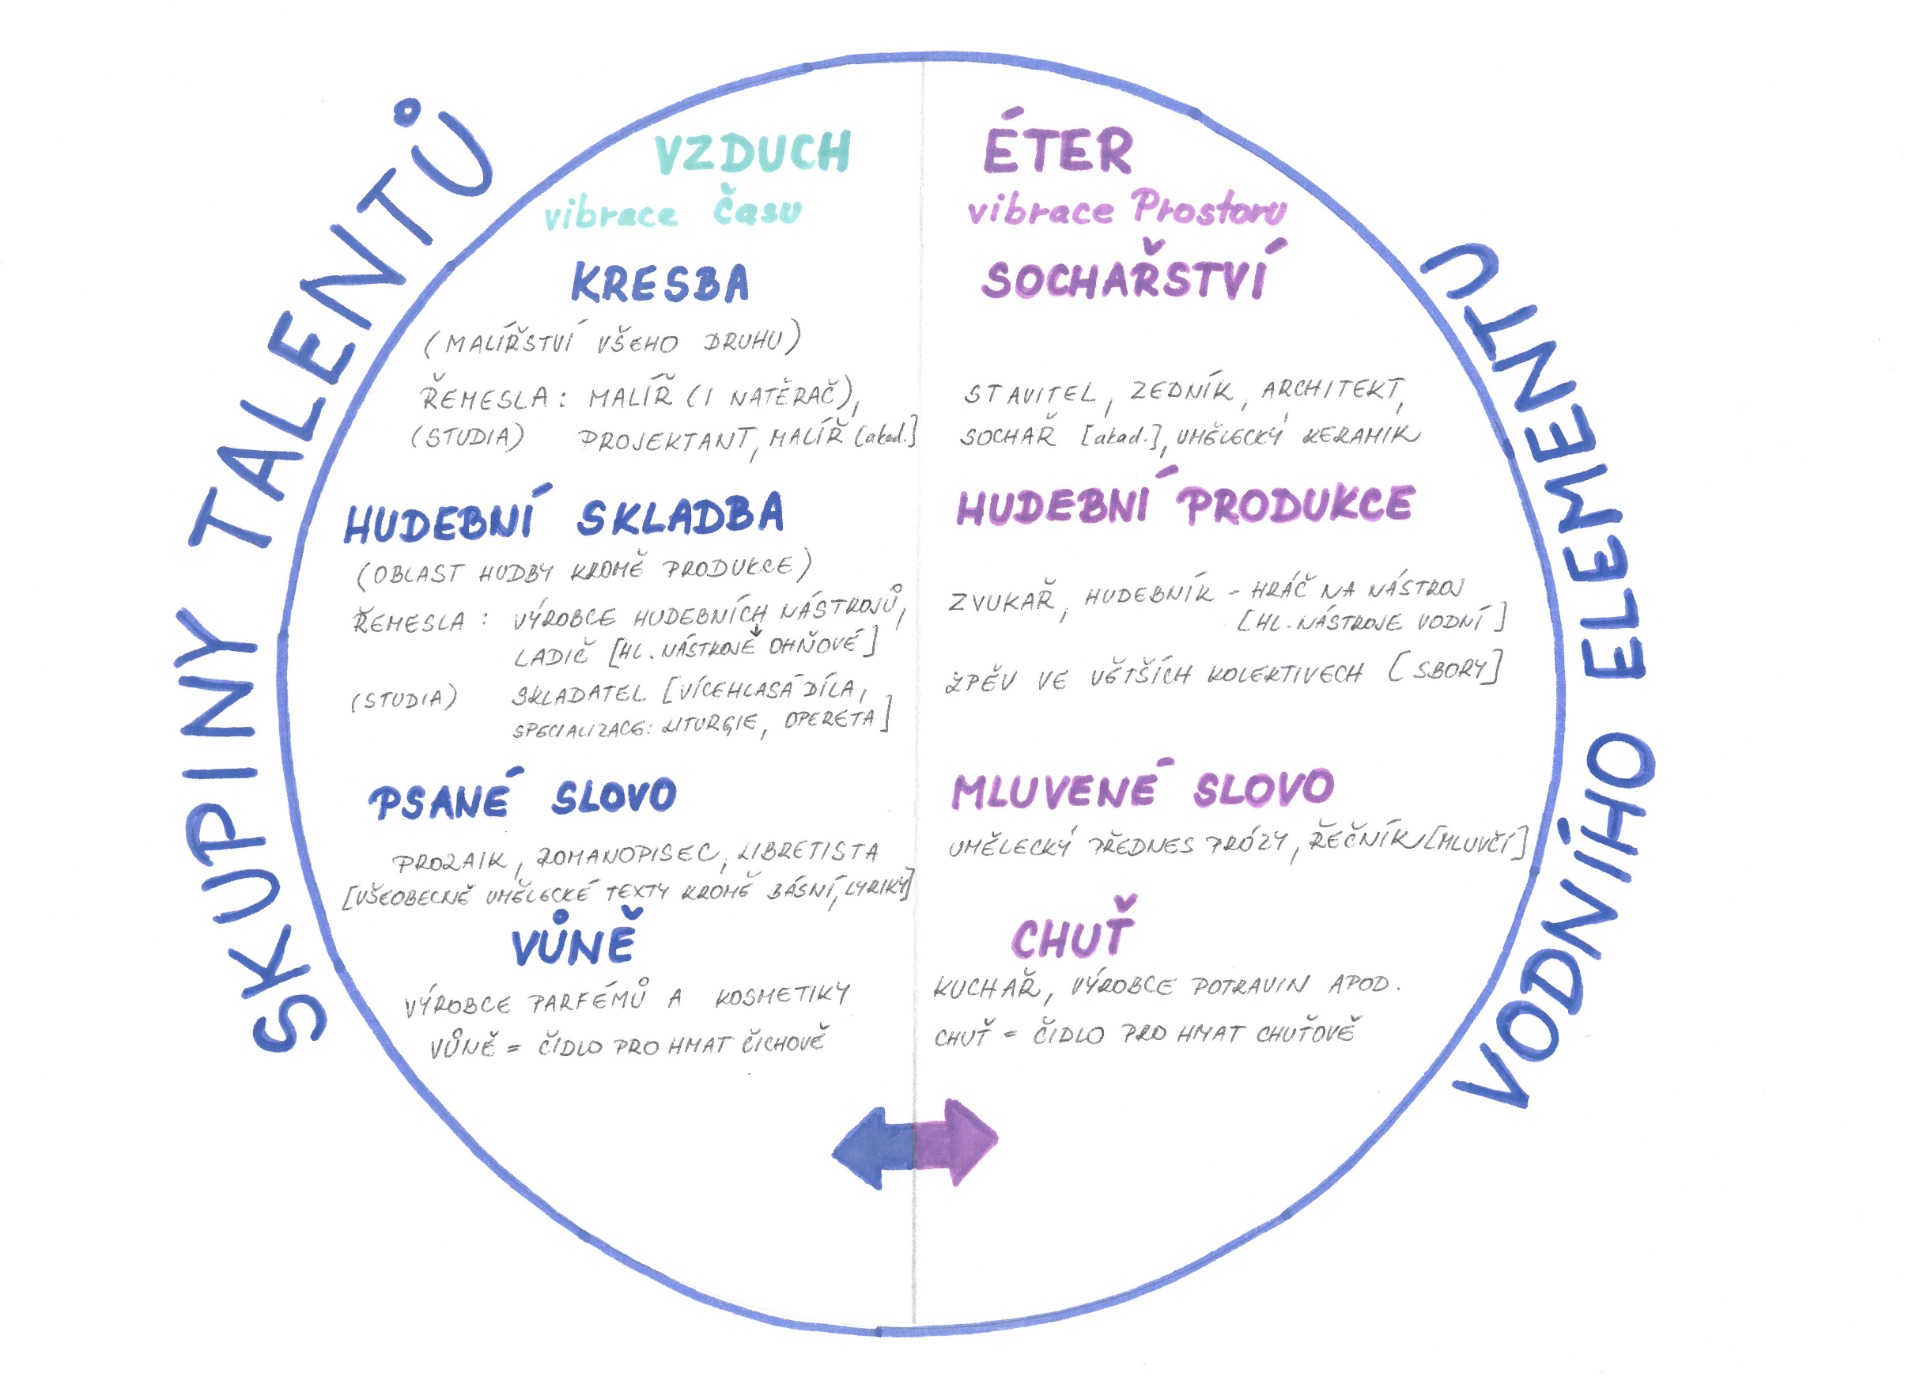 SKUPINY TALENTŮ
VODNÍHO ELEMENTU
VZDUCH
vibrace Času
KRESBA
(MALÍŘSTVÍ VŠEHO DRUHU)
ŘEMESLA: MALÍŘ (I NATĚRAČ),
(STUDIA) PROJEKTANT, MALÍŘ [akad.]
HUDEBNÍ SKLADBA
(OBLAST HUDBY KROMĚ PRODUKCE)
ŘEMESLA: VÝROBCE HUDEBNÍCH NÁSTROJŮ,
LADIČ [HL. NÁSTROJE OHŇOVÉ]
(STUDIA) SKLADATEL [VÍCEHLASÁ DÍLA,
SPECIALIZACE: LITURGIE, OPERETA]
PSANÉ SLOVO
PROZAIK, ROMANOPISEC, LIBRETISTA
[VŠEOBECNĚ UMĚLECKÉ TEXTY KROMĚ BÁSNÍ, LYRIKY]
VŮNĚ
VÝROBCE PARFÉMŮ A KOSMETIKY
VŮNĚ = ČIDLO PRO HMAT ČICHOVĚ
ÉTER
vibrace Prostoru
SOCHAŘSTVÍ
STAVITEL, ZEDNÍK, ARCHITEKT,
SOCHAŘ [akad.], UMĚLECKÝ KERAMIK
HUDEBNÍ PRODUKCE
ZVUKAŘ, HUDEBNÍK - HRÁČ NA NÁSTROJ
[HL. NÁSTROJE VODNÍ]
ZPĚV VE VĚTŠÍCH KOLEKTIVECH [SBORY]
MLUVENÉ SLOVO
UMĚLECKÝ PŘEDNES PRÓZY, ŘEČNÍK [MLUVČÍ]
CHUŤ
KUCHAŘ, VÝROBCE POTRAVIN APOD.
CHUŤ = ČIDLO PRO HMAT CHUŤOVĚ